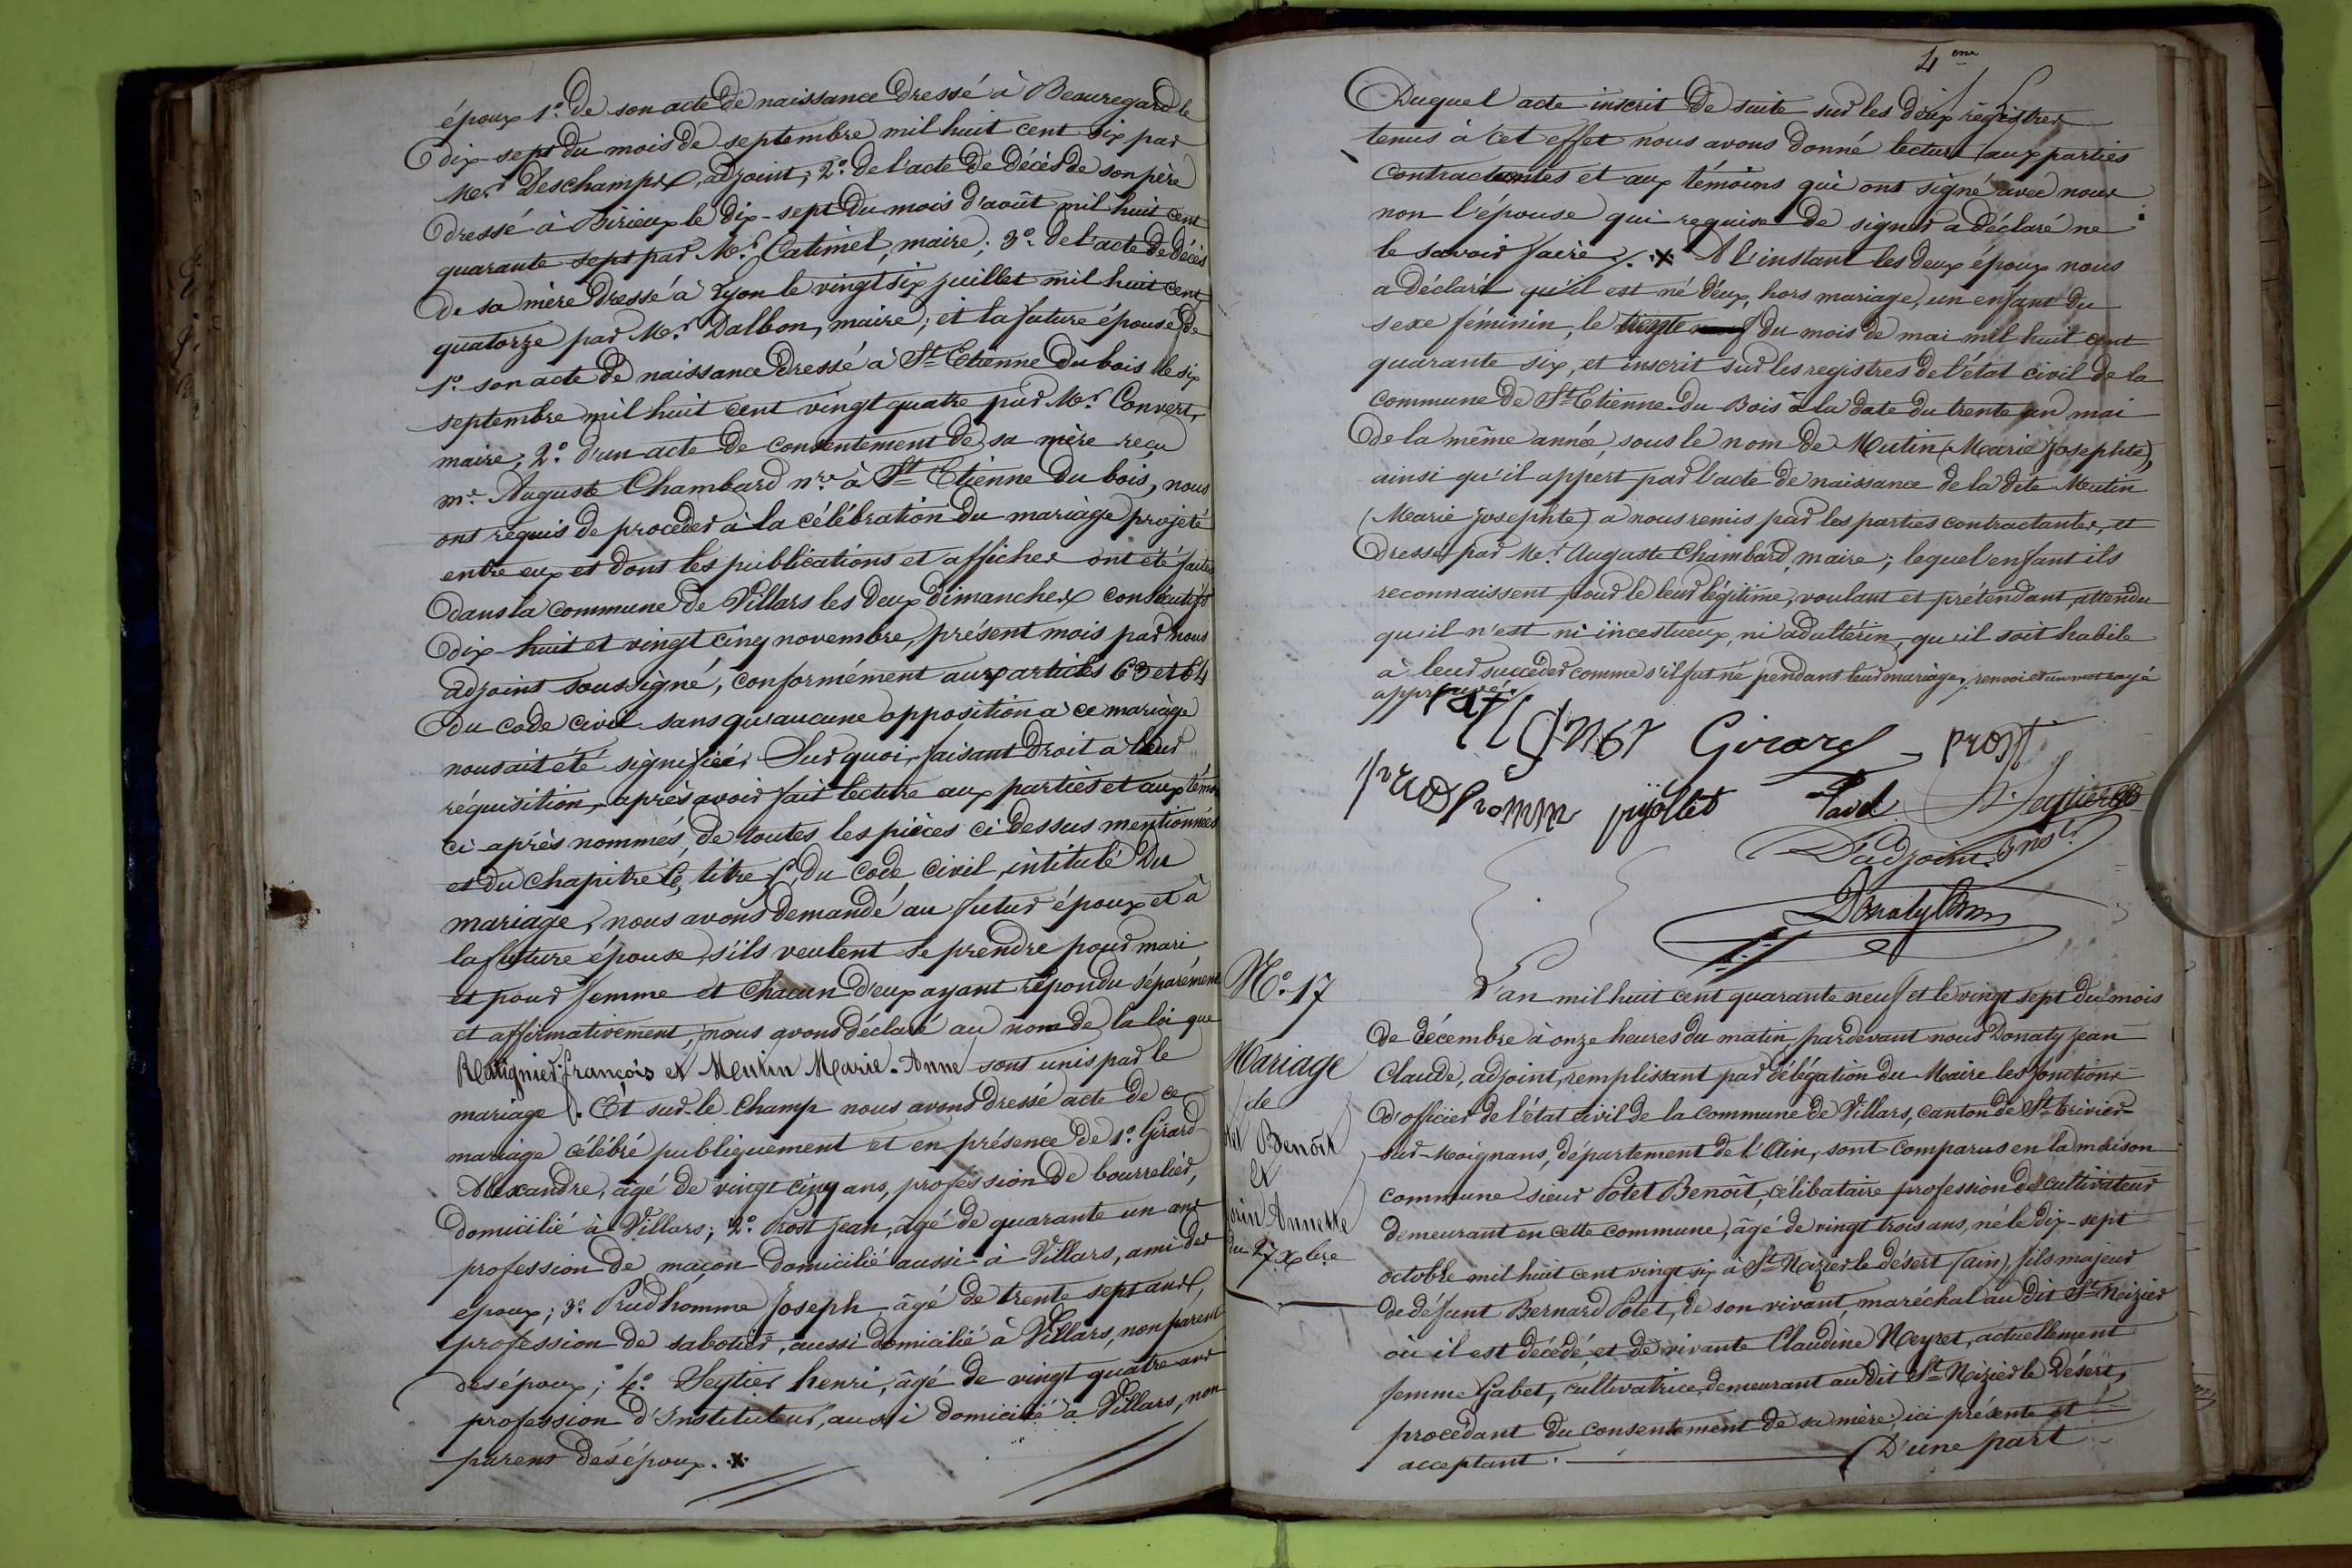 époux 1.° de son acte de naissance dressé à Beauregard le
dix-sept du mois de septembre mil huit cent six par
Mr. Deschamps, adjoint; 2.° de l'acte de décès de son père
dressé à Birieux le dix-sept du mois d'août mil huit cent
quarante sept par Mr. Catimel, maire; 3.° de l'acte de décès
de sa mère dressé à Lyon le vingt six juillet mil huit cent
quatorze par Mr. Dalbon, maire; et la future épouse de
1.° son acte de naissance dressé à St Etienne du bois le six
septembre mil huit cent vingt quatre par Mr. Convert,
maire; 2.° d'un acte de consentement de sa mère reçu
me. Auguste Chambard nre. à St Etienne du bois, nous
ont requis de procéder à la célébration du mariage projeté
entre eux et dont les publications et affiches ont été faites
dans la commune de Villars les deux dimanches consécutifs
dix-huit et vingt cinq novembre, présent mois par nous
adjoint soussigné, conformément aux articles 63 et 64
du code civil sans qu'aucune opposition à ce mariage
nous ait été signifiée. Sur quoi, faisant droit à leur
réquisition, après avoir fait lecture aux parties et aux témoins
ci-après nommés, de toutes les pièces ci dessus mentionnées
et du chapitre 6, titre 5, du Code civil, intitulé Du
mariage, nous avons demandé au futur époux et à
la future épouse, s'ils veulent se prendre pour mari
et pour femme et chacun d'eux ayant répondu séparément
et affirmativement, nous avons déclaré au nom de la loi que
François et Mutin Marie-Anne sont unis par le
mariage. Et sur-le-champ nous avons dressé acte de ce
mariage célébré publiquement et en présence de 1.° Girard
Alexandre, âgé de vingt cinq ans, profession de bourrelier,
domicilié à Villars; 2.° Prost Jean, âgé de quarante un ans
profession de maçon domicilié aussi à Villars, ami des
époux; 3.° Prudhomme Joseph âgé de trente sept ans,
profession de sabotier, aussi domicilié à Villars, non parent
des époux; 4.° Seytier henri, âgé de vingt quatre ans
profession d'Instituteur, aussi domicilié à Villars, non
parent des époux. x
4eme
Duquel acte inscrit de suite sur les deux registres
tenus à cet effet nous avons donné lecture aux parties
contractantes et aux témoins qui ont signé avec nous
non l'épouse qui requise de signer a déclaré ne
le savoir faire. x A l'instant les deux époux nous
a déclaré qu'il est né d'eux, hors mariage, un enfant du
sexe féminin, le trente du mois de mai mil huit cent
quarante six, et inscrit sur les registres de l'état civil de la
commune de St Etienne-du-Bois à la date du trente un mai
de la même année, sous le nom de Mutin (Marie Josephte),
ainsi qu'il appert par l'acte de naissance de la dite Mutin
(Marie Josephte) a nous remis par les parties contractantes, et
dressé par Mr. Auguste Chambard, maire; lequel enfant ils
reconnaissent pour le leur légitime, voulant et prétendant, attendu
qu'il n'est ni incestueux, ni adultérin, qu'il soit habile
à leur succéder comme s'il fut né pendant leur mariage. renvoi et un mot rayé
approuvé.
Girard prost
prudhomme pijollet H. Seytier
L'adjoint Instr.
Donaty
N.° 17
Mariage
de
Benoît
et
Annette
du 27 Xbre
L'an mil huit cent quarante neuf et le vingt sept du mois
de décembre à onze heures du matin, pardevant nous Donaty Jean
Claude, adjoint, remplissant par délégation du Maire les fonctions
d'officier de l'état civil de la commune de Villars, canton de St Trivier-
sur-Moignans, département de l'Ain, sont comparus en la maison
commune sieur Polet Benoît, célibataire profession de cultivateur
demeurant en cette commune, âgé de vingt trois ans, né le dix-sept
octobre mil huit cent vingt six à St Nizier le désert (ain), fils majeur
de défunt Bernard Polet, de son vivant, maréchal au dit St Nizier
où il est décédé, et de vivante Claudine Neyret, actuellement
femme Gabet, cultivatrice, demeurant au dit St Nizier le Désert,
procédant du consentement de sa mère, ici présente et
acceptant. D'une part